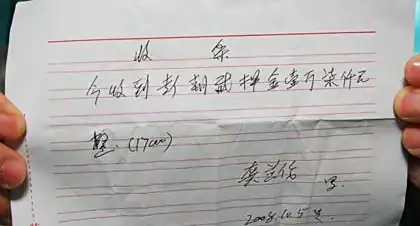 收 条
今收到彭朝武押金壹万柒仟元
整. (17000)
龚益伦 写.
2008.10.5号.